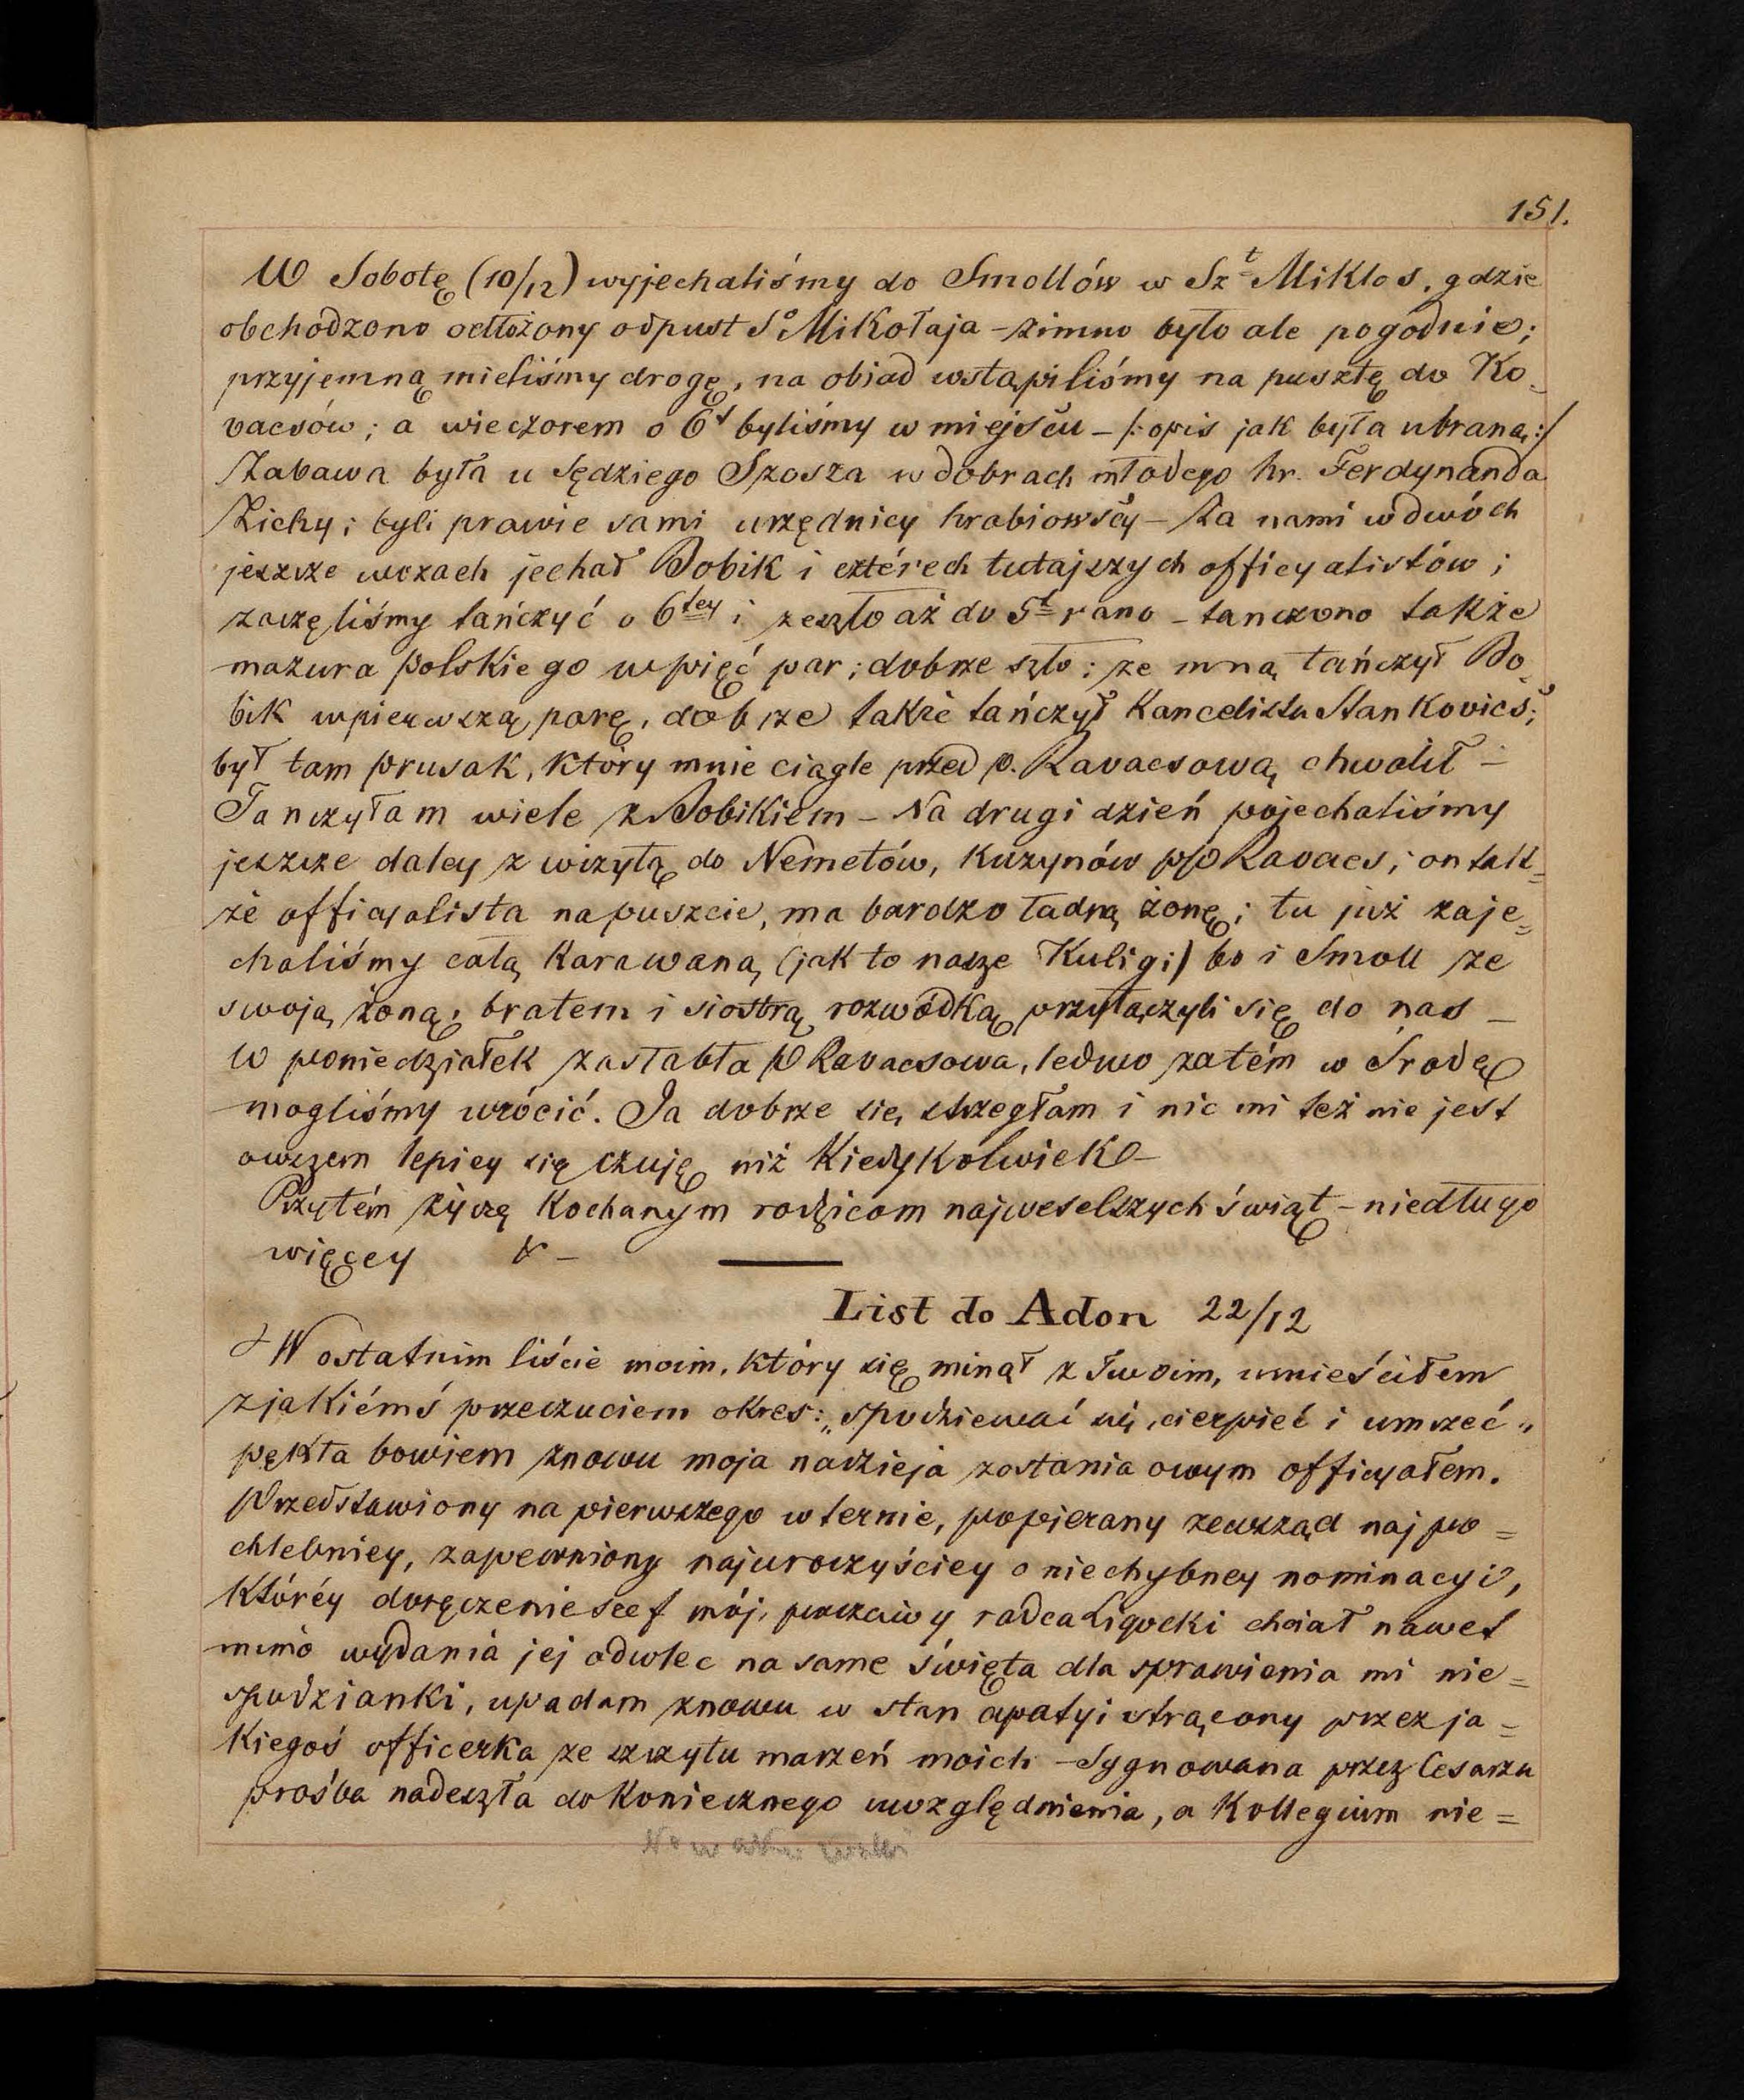 151.
W Sobotę (10/12) wyjechaliśmy do Smollów w Sz<sup>t</sup> Miklos, gdzie
obchodzono odłożony odpust S<sup>o</sup> Mikołaja – zimno było ale pogodnie;
przyjemną mieliśmy drogę, na obiad wstąpiliśmy na pusztę do Ko-
vacsów; a wieczorem o 6<sup>t</sup> byliśmy w miejscu – /: opis jak była ubraną :/
Zabawa była u Sędziego Szosza w dobrach młodego hr. Ferdynanda
Zichy; byli prawie sami urzędnicy hrabiowscy – Za nami w dwóch
jeszcze wozach jechał Bobik i cztérech tutajszych officyalistów;
zaczęliśmy tańczyć o 6<sup>tey</sup> i zeszło aż do 5<sup>t</sup> rano – tanczono także
mazura polskiego w pięć par; dobrze szło; ze mną tańczył Bo-
bik w pierwszą parę, dobrze także tańczył Kancelista Stankovics;
był tam prusak, który mnie ciągle przed p. Kavacsową chwalił –
Tanczyłam wiele z Bobikiem – Na drugi dzień pojechaliśmy
jeszcze daley z wizytą do Nemetów, kuzynów p/p Kavacs; on tak=
że officyalista na puszcie, ma bardzo ładną żonę; tu już zaje=
chaliśmy całą karawaną (jak to nasze Kuligi) bo i Smoll ze
swoją żoną, bratem i siostrą rozwódką przyłączyli się do nas –
W poniedziałek zasłabła p Kavacsowa, ledwo zatém w Srodę
mogliśmy wrócić. Ja dobrze się strzegłam i nic mi też nie jest
owszem lepiey się czuję niż kiedykolwiek –
Przytém życzę kochanym rodzicom najweselszych świąt – niedługo
więcey &c –
List do Adon 22/12
W ostatnim liście moim, który się minął z Twoim, umieściłem
z jakiémś przeczuciem okres: „spodziewać się, cierpieć i umrzeć"
pękła bowiem znowu moja nadzieja zostania owym officyałem.
Przedstawiony na pierwszego w ternie, popierany zewsząd najpo=
chlebniey, zapewniony najuroczyściey o niechybney nominacyi,
któréy doręczenie szef mój, poczciwy radca Ligocki chciał nawet
mimo wydania jej odwlec na same święta dla sprawienia mi nie=
spodzianki, upadam znowu w stan apatyi strącony przez ja=
kiegoś officerka ze szczytu marzeń moich – Sygnowana przez Cesarza
prośba nadeszła do koniecznego uwzględnienia, a Kollegium nie=